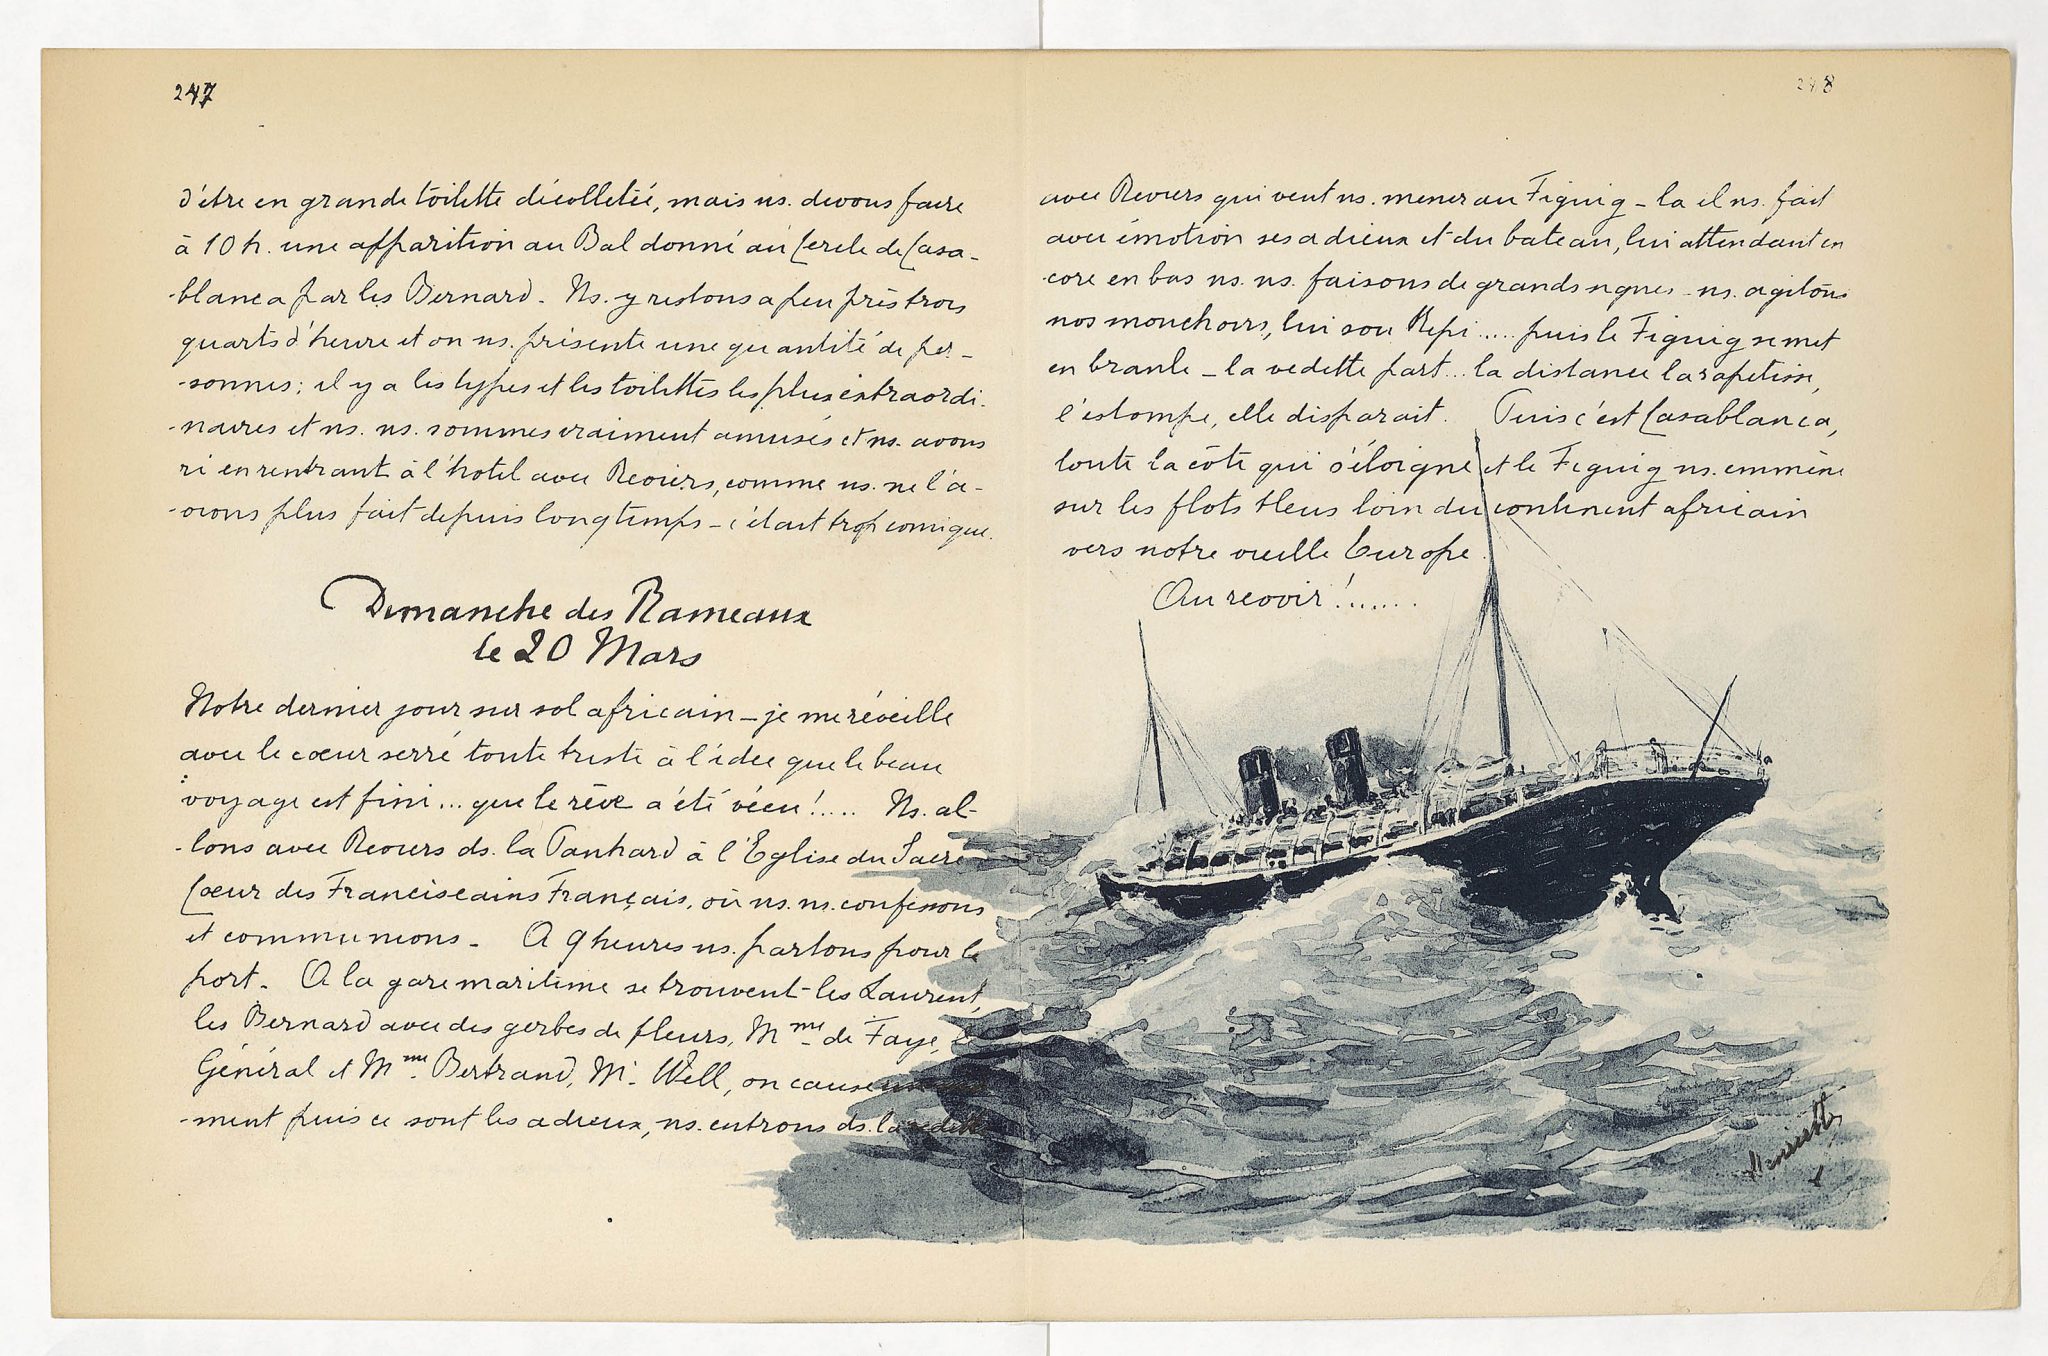 247
d'être en grande toilette décolletée, mais ns. devons faire
à 10 h. une apparition au Bal donné au Cercle de Casa-
-blanca par les Bernard. Ns. y restons a peu près trois
quarts d'heure et on ns. présente une quantité de per-
-sonnes; il y a les types et les toilettes les plus extraordi-
-naires et ns. ns. sommes vraiment amusés et ns. avons
ri en rentrant à l'hôtel avec Reviers, comme ns. ne l'a-
-vions plus fait depuis longtemps - c'était trop comique.
Dimanche des Rameaux
le 20 Mars
Notre dernier jour sur sol africain - je me réveille
avec le cœur serré toute triste à l'idée que le beau
voyage est fini... que le rêve a été vécu!.... Ns. al-
-lons avec Reviers ds. la Panhard à l'Eglise du Sacré
Cœur des Franciscains Français, où ns. ns. confessons
et communions. A 9 heures ns. partons pour le
port. A la gare maritime se trouvent les Laurent,
les Bernard avec des gerbes de fleurs, Mme de Faye, le
Général et Mme Bertrand, Mr. Well, on cause un mo-
-ment puis ce sont les adieux, ns. entrons ds. la vedette
248
avec Reviers qui veut ns. mener au Figuig - la il ns. fait
avec émotion ses adieux et du bateau, lui attendant en
-core en bas ns. ns. faisons de grands signes - ns. agitons
nos mouchoirs, lui son Kepi..... puis le Figuig se met
en branle - la vedette part... la distance la rapetisse,
l'estompe, elle disparait. Puis c'est Casablanca,
toute la côte qui s'éloigne et le Figuig ns. emmène
sur les flots bleus loin du continent africain
vers notre vieille Europe.
Au revoir!......
Henriette